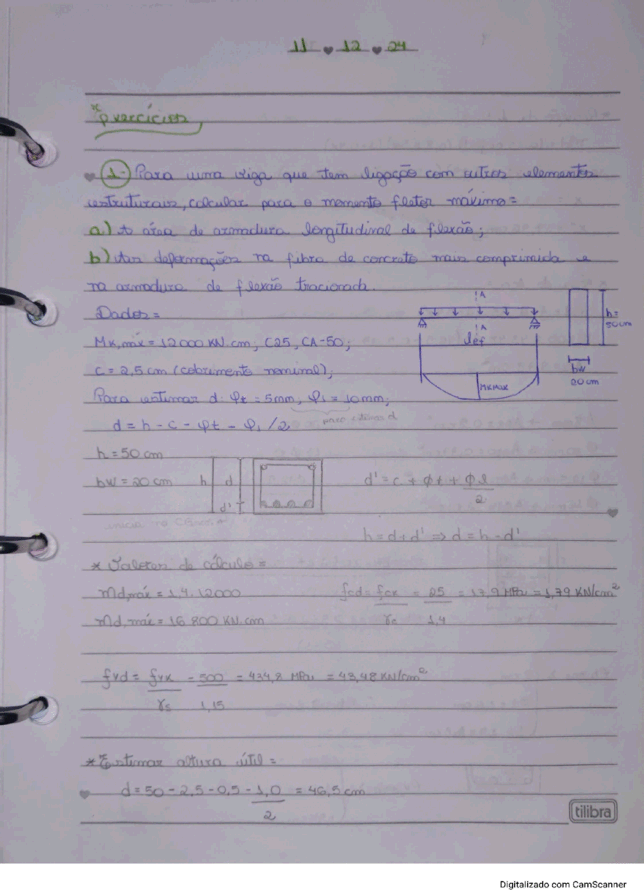 11 ♥ 12 ♥ 24
*Exercícios
1- Para uma viga que tem ligação com outros elementos
estruturais, calcular para o momento fletor máximo:
a) A área de armadura longitudinal de flexão;
b) As deformações na fibra de concreto mais comprimida e
na armadura de flexão tracionada.
Dados:
A
A
lef
Mk,máx
h=
50cm
bw
20cm
Mk,máx = 12000 KN.cm, C25, CA-50;
c = 2,5cm (cobrimento nominal);
Para estimar d: φt = 5mm, φl = 10mm,
d = h - c - φt - φl/2
h = 50 cm
bw = 20cm
h d
d'
d' = c + φt + φl
2
h = d + d' ⇒ d = h - d'
* Valores de cálculo =
Md,máx = 1,4.12000
fcd = fck = 25 = 17,9 MPa = 1,79 KN/cm²
γc 1,4
Md,máx = 16 800 KN.cm
fyd = fyk = 500 = 434,8 MPa = 43,48 KN/cm²
γs 1,15
* Estimar altura útil =
d = 50 - 2,5 - 0,5 - 1,0 = 46,5 cm
2
tilibra
Digitalizado com CamScanner